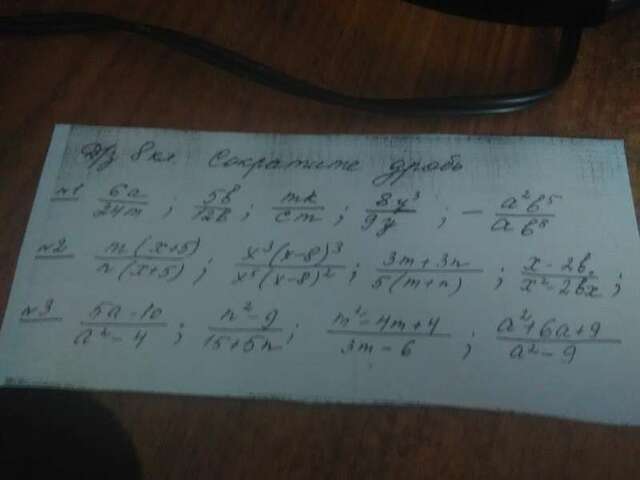 Д/з 8 кл Сократите дробь
№1 6a/24m ; 5b/12b ; mk/cm ; 8y³/9y ; - a²b⁵/ab⁸
№2 m(x+5)/n(x+5) ; x³(x-8)³/x⁵(x-8)² ; 3m+3n/5(m+n) ; x-2b/x²-2bx ;
№3 5a-10/a²-4 ; n²-9/15+5n ; m²-4m+4/3m-6 ; a²+6a+9/a²-9